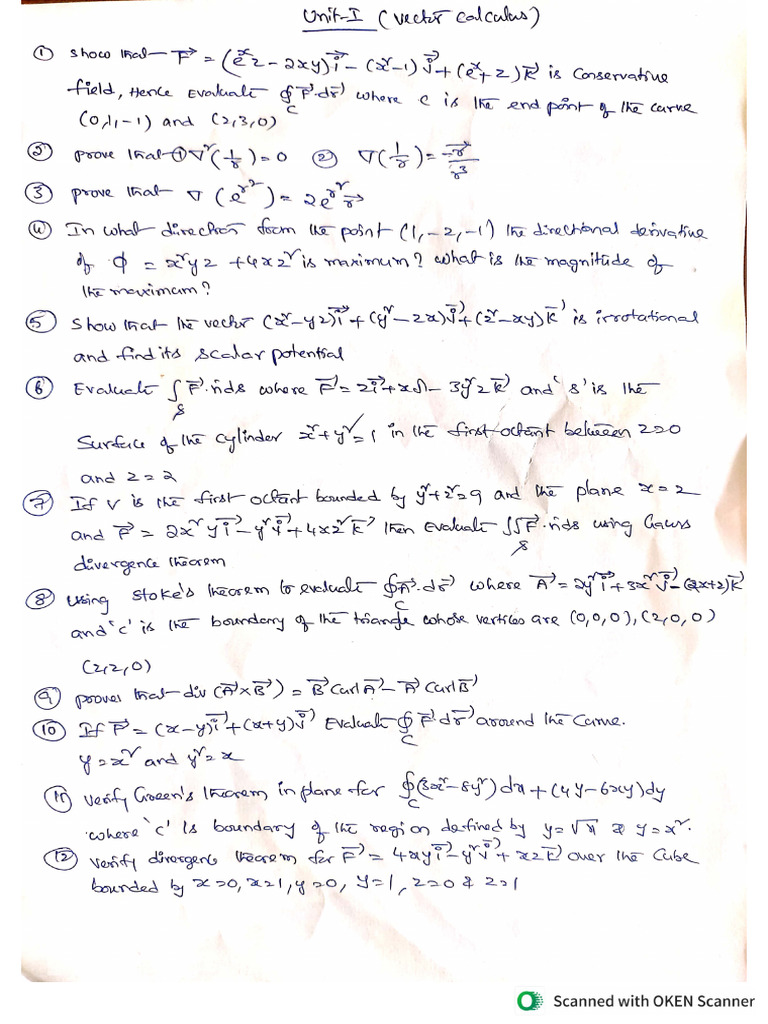 Unit-I (Vector Calculus)
① Show that F⃗ = (eˣz - 2xy)i⃗ - (x²-1)j⃗ + (eˣ+z)k⃗ is Conservative
field, Hence Evaluate ∮_C F⃗.dr⃗ where C is the end point of the curve
(0,1,-1) and (2,3,0)
② prove that ① ∇²(1/r) = 0 ② ∇(1/r) = -r⃗/r³
③ prove that ∇(e^r²) = 2e^r² r⃗
④ In what direction from the point (1,-2,-1) the directional derivative
of φ = x²yz + 4xz² is maximum? what is the magnitude of
the maximum?
⑤ Show that the vector (x²-yz)i⃗ + (y²-zx)j⃗ + (z²-xy)k⃗ is irrotational
and find its scalar potential
⑥ Evaluate ∫_S F⃗.n̄ds where F⃗ = zi⃗ + xj⃗ - 3y²zk⃗ and 'S' is the
Surface of the cylinder x²+y²=1 in the first octant between z=0
and z=2
⑦ If V is the first octant bounded by y²+z²=9 and the plane x=2
and F⃗ = 2x²yi⃗ - y²j⃗ + 4xz²k⃗ then Evaluate ∫∫_S F⃗.n̄ds using Gauss
divergence theorem
⑧ using Stoke's theorem to evaluate ∮_C A⃗.dr⃗ where A⃗ = 2y²i⃗ + 3x²j⃗ - (2x+z)k⃗
and 'c' is the boundary of the triangle whose vertices are (0,0,0), (2,0,0)
(2,2,0)
⑨ proves that div (A⃗×B⃗) = B⃗ Curl A⃗ - A⃗ Curl B⃗
⑩ If F⃗ = (x-y)i⃗ + (x+y)j⃗ Evaluate ∮_C F⃗ dr⃗ around the Curve.
y=x² and y²=x
⑪ Verify Green's theorem in plane for ∮_C (3x²-8y²)dx + (4y-6xy)dy
where 'c' is boundary of the region defined by y=√x & y=x².
⑫ Verify divergence theorem for F⃗ = 4xyi⃗ - y²j⃗ + xzk⃗ over the Cube
bounded by x=0, x=1, y=0, y=1, z=0 & z=1
Scanned with OKEN Scanner